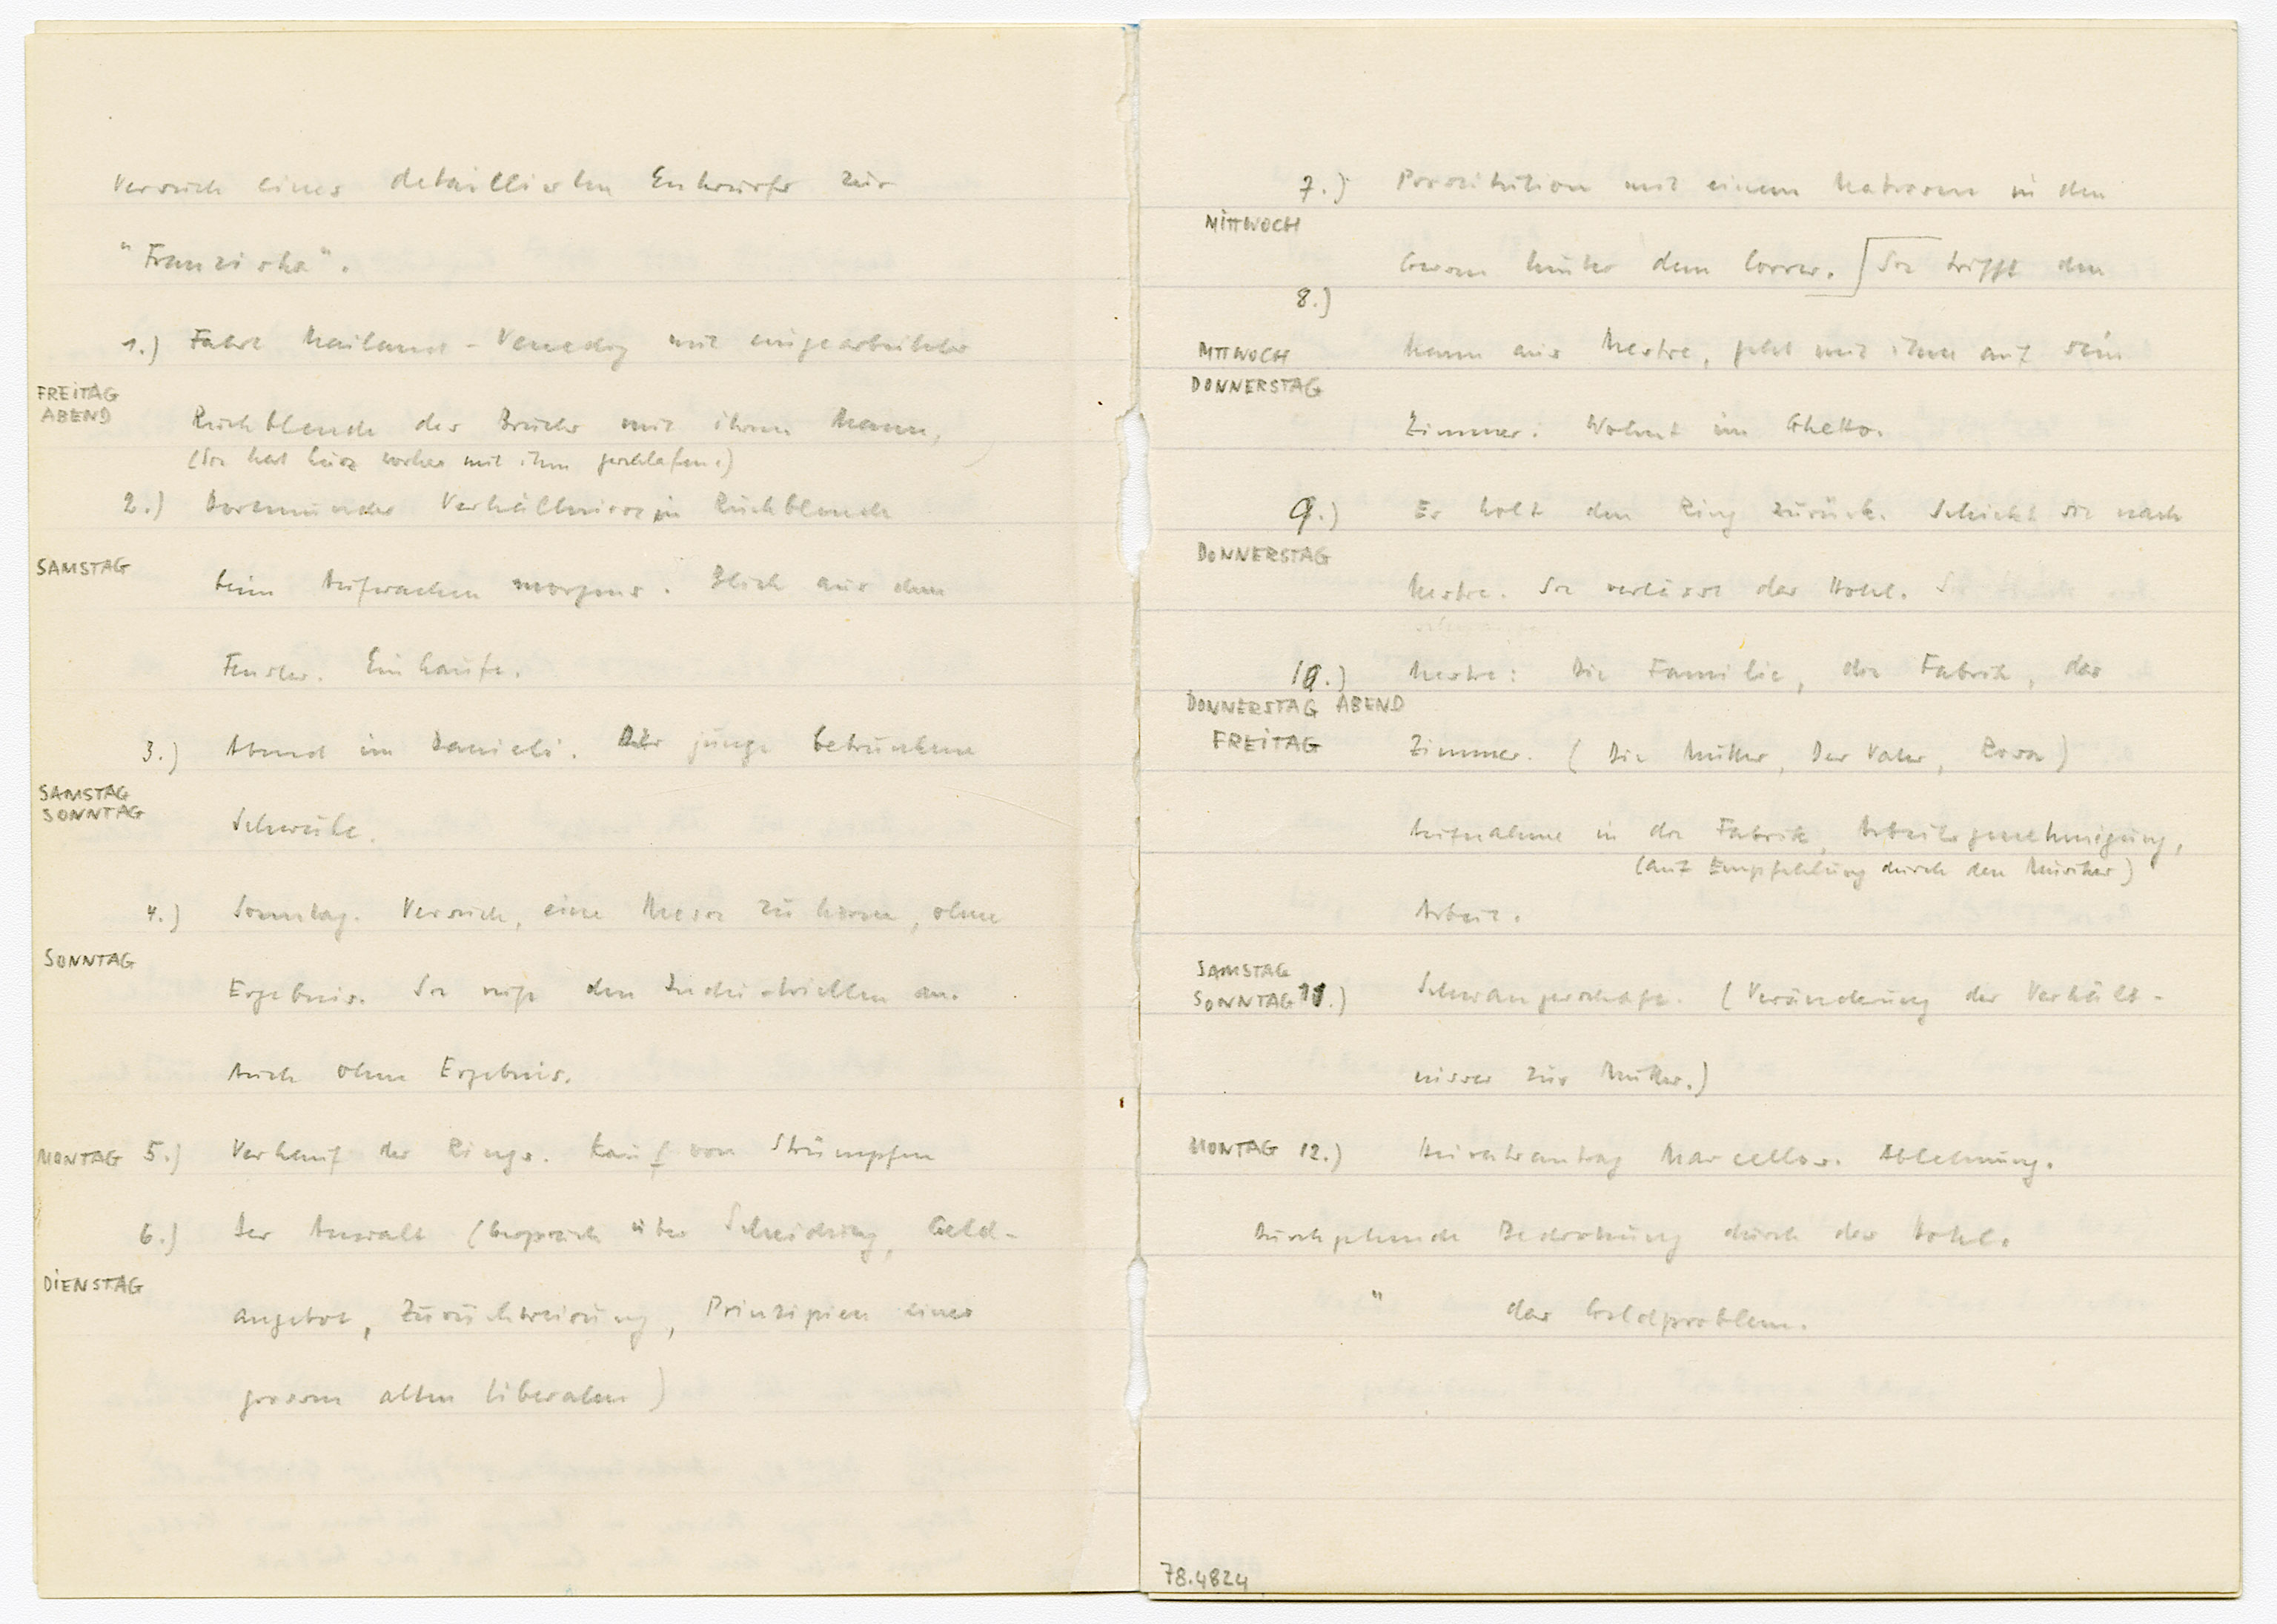 Versuch eines detaillierten Entwurfs zur
"Franziska".
1.) Fahrt Mailand - Venedig mit eingearbeiteter
FREITAG
ABEND
Rückblende des Bruchs mit ihrem Mann,
(Sie hat kurz vorher mit ihm geschlafen.)
2.) Dortmunder Verhältnisse in Rückblende
SAMSTAG
beim Aufwachen morgens. Blick aus dem
Fenster. Einkäufe.
3.) Abend im Danieli. Der junge betrunkene
SAMSTAG
SONNTAG
Schwule.
4.) Sonntag. Versuch, eine Messe zu hören, ohne
SONNTAG
Ergebnis. Sie ruft den Industriellen an.
Auch ohne Ergebnis.
MONTAG 5.) Verkauf des Rings. Kauf von Strümpfen
6.) Der Anwalt (Gespräch über Scheidung, Geld-
DIENSTAG
angebot, Zurückweisung, Prinzipien eines
grossen alten Liberalen)
7.) Prostitution mit einem Matrosen in den
MITTWOCH
Gassen hinter dem Correr. Sie trifft den
8.)
MITTWOCH
DONNERSTAG
Mann aus Mestre, geht mit ihm auf sein
Zimmer. Wohnt im Ghetto.
9.) Er holt den Ring zurück. Schickt sie nach
DONNERSTAG
Mestre. Sie verlässt das Hotel.
10.) Mestre: Die Familie, die Fabrik, das
DONNERSTAG ABEND
FREITAG
Zimmer. (Die Mutter, Der Vater, Rosa)
Aufnahme in die Fabrik, Arbeitsgenehmigung,
(auf Empfehlung durch den Musiker)
Arbeit.
SAMSTAG
SONNTAG 11.) Schwangerschaft. (Veränderung der Verhält-
nisses zur Mutter.)
MONTAG 12.) Heiratsantrag Marcellos. Ablehnung.
Durchgehende Bedrohung durch das Hotel.
" das Geldproblem.
78.4824